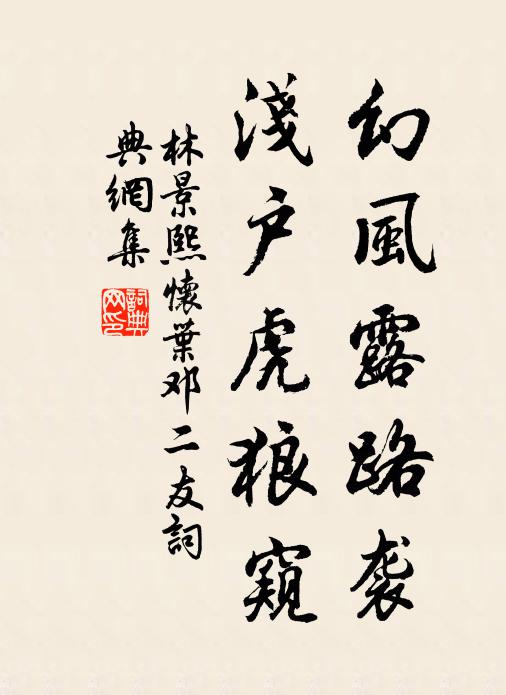 幻風露路袭
淺户虎狼窺
林景熙懷葉邓二友詞
典網集
詞典网印